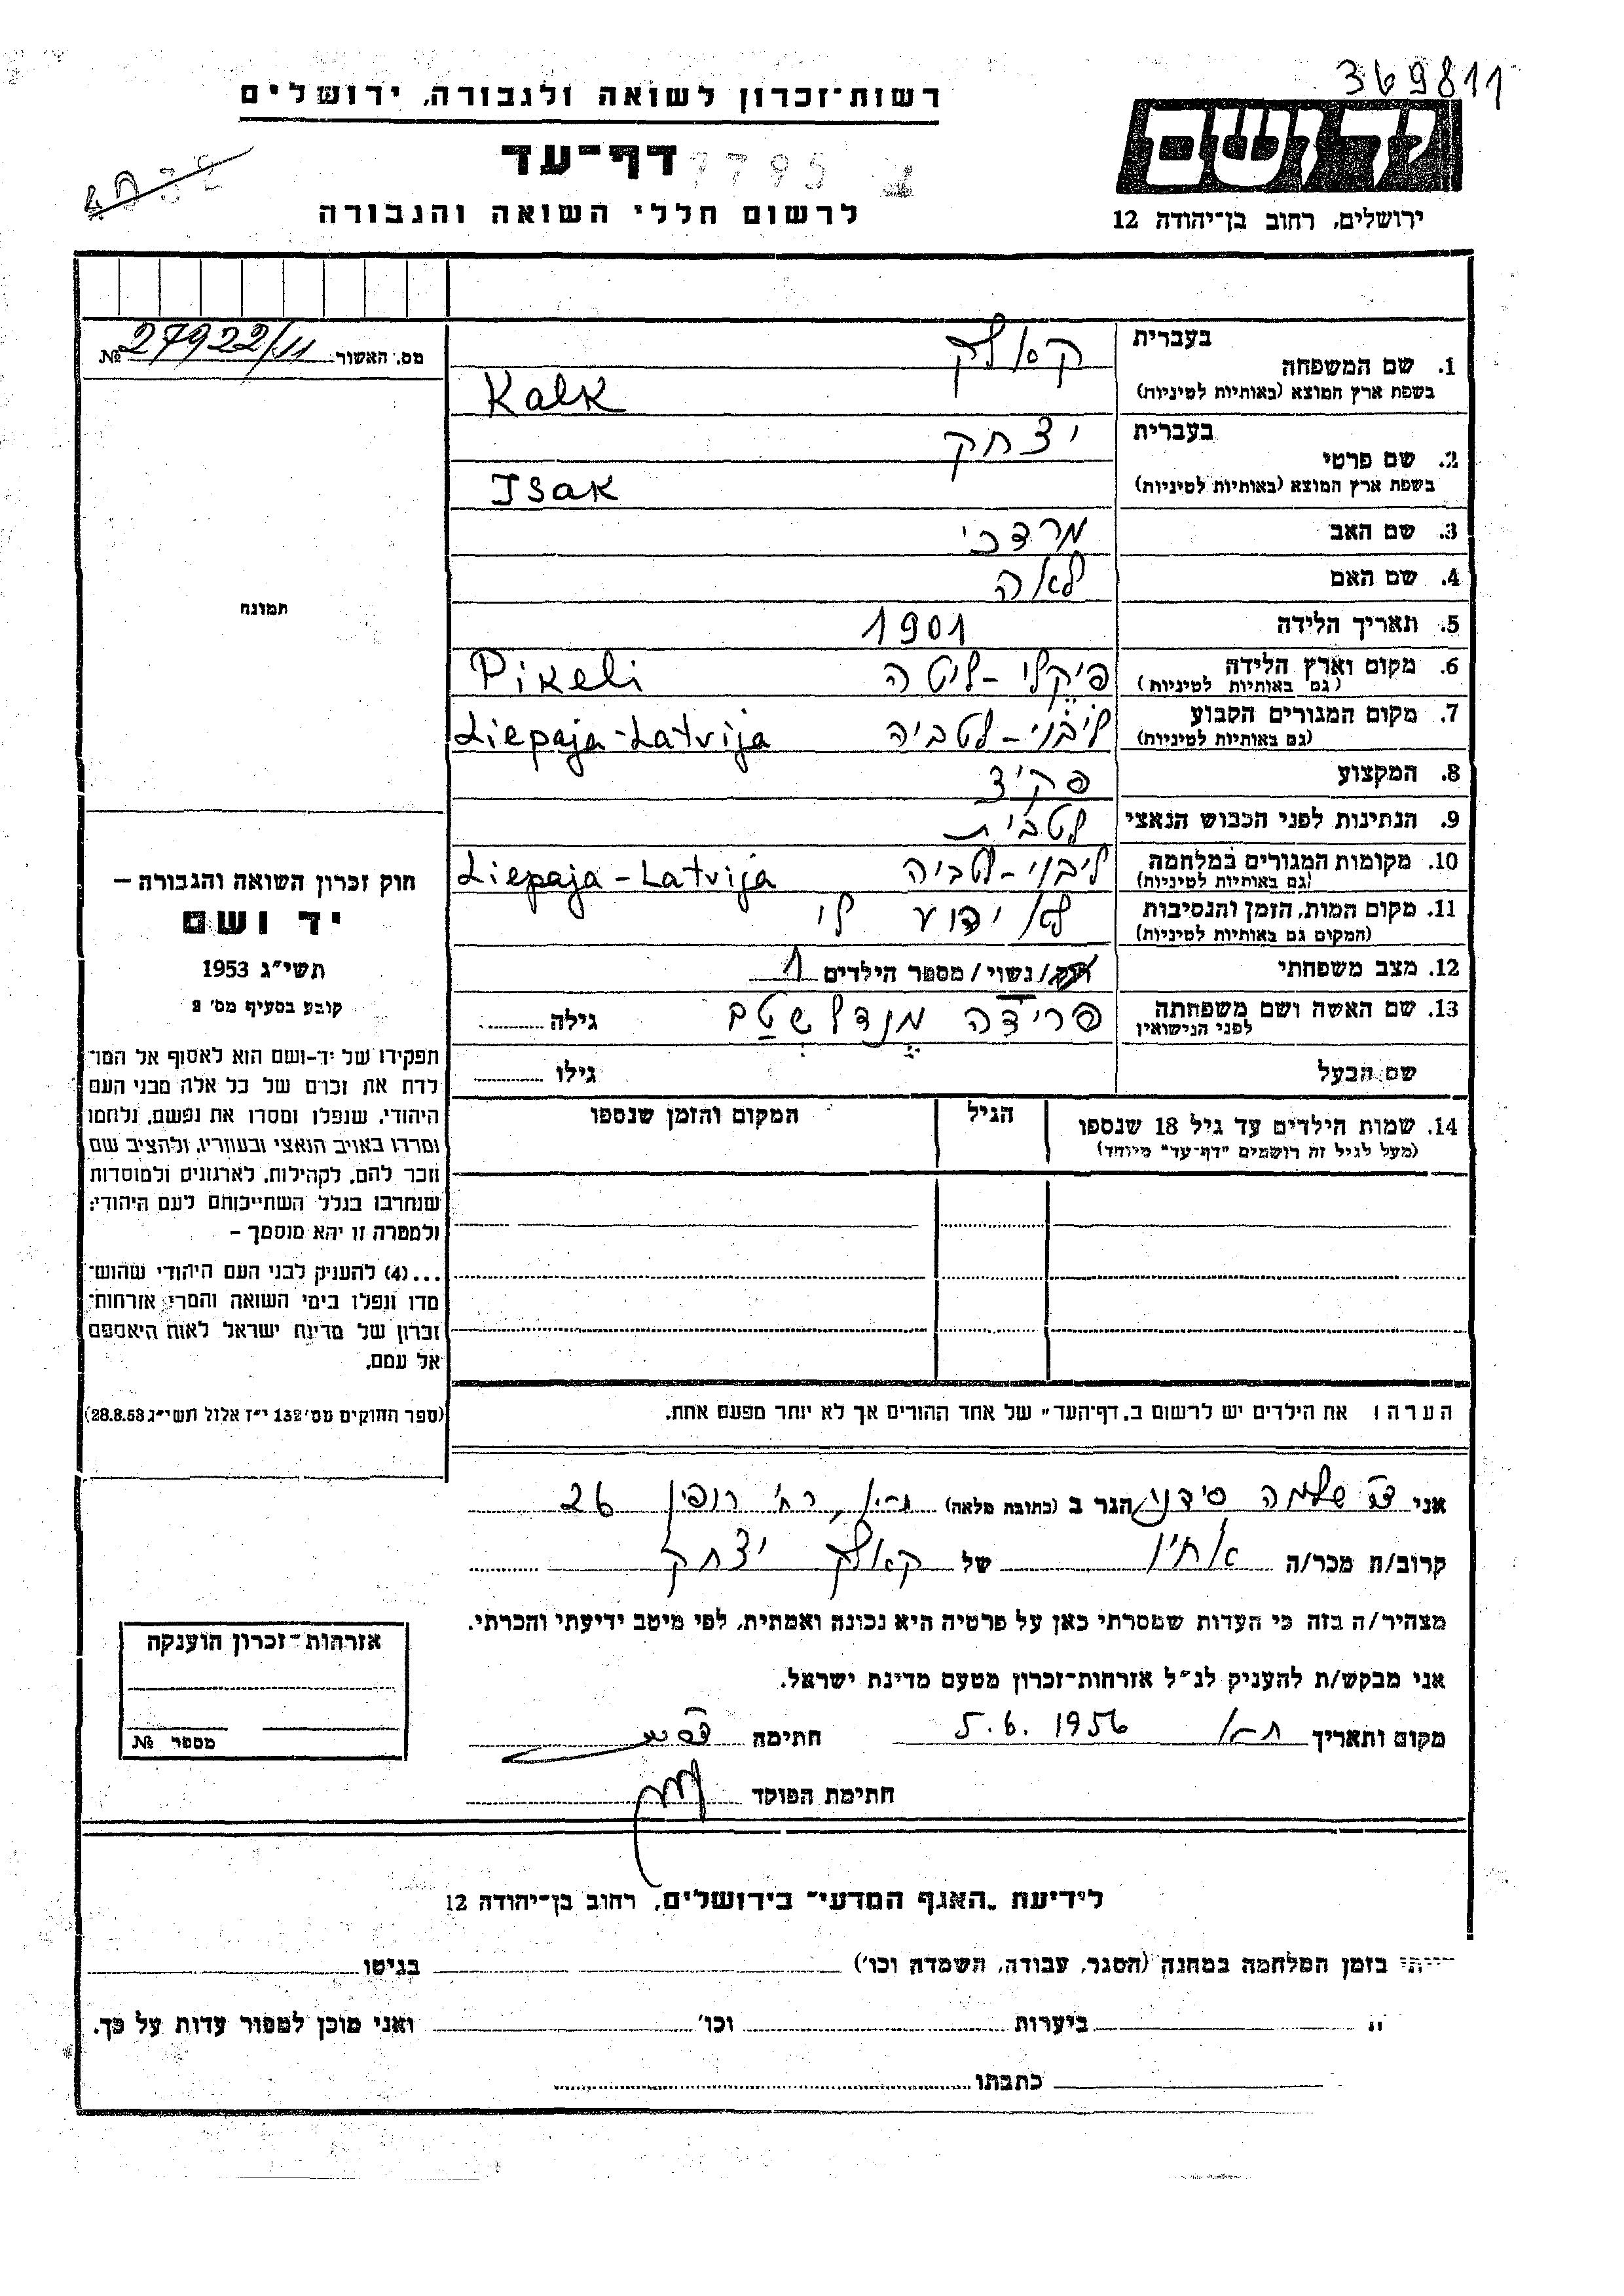 369811
רשות־זכרון לשואה ולגבורה, ירושלים
יד ושם
דף־עד
7795
לרשום חללי השואה והגבורה
ירושלים, רחוב בן־יהודה 12
מס. האשור 27922/11 №
בעברית קאלק
1. שם המשפחה
בשפת ארץ המוצא (באותיות לטיניות) Kalk
בעברית יצחק
2. שם פרטי
בשפת ארץ המוצא (באותיות לטיניות) Isak
3. שם האב מרדכי
4. שם האם לאה
5. תאריך הלידה 1901
6. מקום וארץ הלידה פיקלי - ליטה Pikeli
(גם באותיות לטיניות)
7. מקום המגורים הקבוע ליבוי - לטביה Liepaja-Latvija
(גם באותיות לטיניות)
8. המקצוע פקיד
9. הנתינות לפני הכבוש הנאצי לטבית
10. מקומות המגורים במלחמה ליבוי - לטביה Liepaja-Latvija
(גם באותיות לטיניות)
11. מקום המות, הזמן והנסיבות לא ידוע לי
(המקום גם באותיות לטיניות)
12. מצב משפחתי רוק/נשוי/מספר הילדים 1
13. שם האשה ושם משפחתה פרידה מנדלשטם גילה
לפני הנישואין
שם הבעל גילו
14. שמות הילדים עד גיל 18 שנספו הגיל המקום והזמן שנספו
(מעל לגיל זה רושמים "דף־עד" מיוחד)
הערה: את הילדים יש לרשום ב„דף־העד" של אחד ההורים אך לא יותר מפעם אחת.
תמונה
חוק זכרון השואה והגבורה –
יד ושם
תשי"ג 1953
קובע בסעיף מס' 2
תפקידו של יד-ושם הוא לאסוף אל המו־
לדת את זכרם של כל אלה מבני העם
היהודי, שנפלו ומסרו את נפשם, נלחמו
ומרדו באויב הנאצי ובעוזריו, ולהציב שם
וזכר להם, לקהילות, לארגונים ולמוסדות
שנחרבו בגלל השתייכותם לעם היהודי;
ולמטרה זו יהא מוסמך –
...(4) להעניק לבני העם היהודי שהוש־
מדו ונפלו בימי השואה והמרי אזרחות־
זכרון של מדינת ישראל לאות היאספם
אל עמם.
(ספר החוקים מס' 132 י"ז אלול תשי"ג 28.8.53)
אני שלמה סידני הגר ב (כתובת מלאה) רח' רופין 26
קרוב/ה מכר/ה אחיו של קאלק יצחק
מצהיר/ה בזה כי העדות שמסרתי כאן על פרטיה היא נכונה ואמתית, לפי מיטב ידיעתי והכרתי.
אני מבקש/ת להעניק לנ"ל אזרחות־זכרון מטעם מדינת ישראל.
מקום ותאריך ת"א 5.6.1956 חתימה
חתימת הפוקד
אזרחות־זכרון הוענקה
מספר №
לידיעת „האגף המדעי" בירושלים, רחוב בן־יהודה 12
בזמן המלחמה במחנה (הסגר, עבודה, השמדה וכו') בגיטו
" ביערות וכו' ואני מוכן למסור עדות על כך.
כתבתו